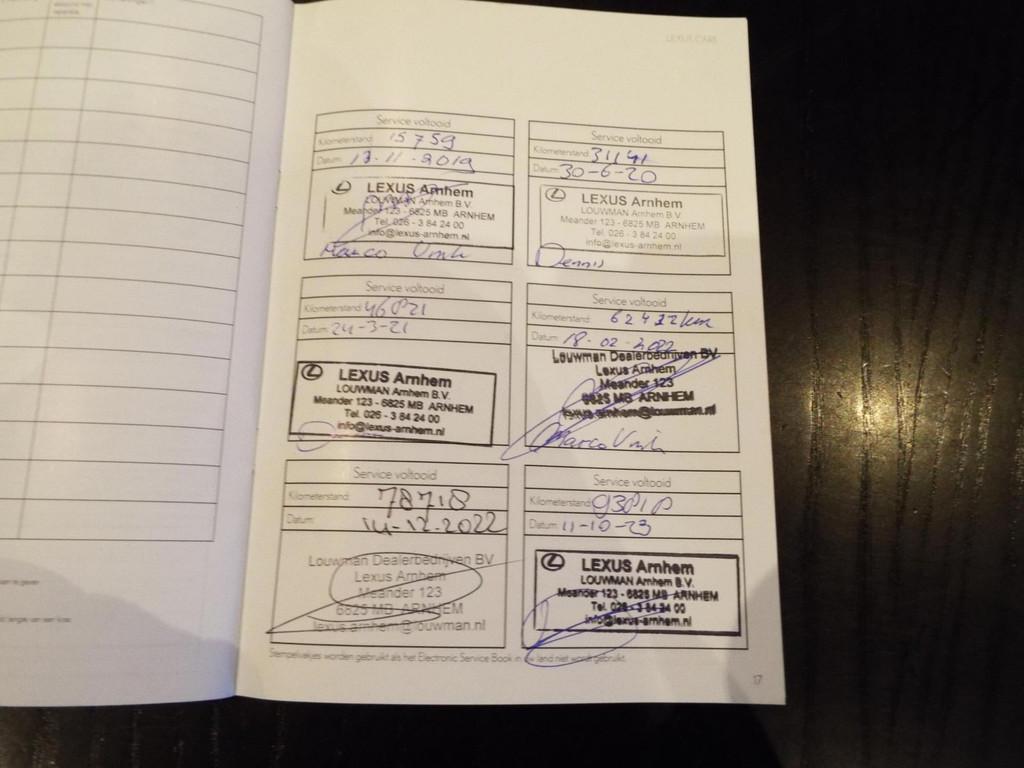 LEXUS CARE
Service voltooid
Kilometerstand: 15759
Datum: 13-11-2019
LEXUS Arnhem
LOUWMAN Arnhem B.V.
Meander 123 - 6825 MB ARNHEM
Tel. 026 - 3 84 24 00
info@lexus-arnhem.nl
Marco
Service voltooid
Kilometerstand: 31141
Datum: 30-6-20
LEXUS Arnhem
LOUWMAN Arnhem B.V.
Meander 123 - 6825 MB ARNHEM
Tel. 026 - 3 84 24 00
info@lexus-arnhem.nl
Dennis
Service voltooid
Kilometerstand: 46821
Datum: 24-3-21
LEXUS Arnhem
LOUWMAN Arnhem B.V.
Meander 123 - 6825 MB ARNHEM
Tel. 026 - 3 84 24 00
info@lexus-arnhem.nl
Service voltooid
Kilometerstand: 62422km
Datum: 18-02-2022
Louwman Dealerbedrijven BV
Lexus Arnhem
Meander 123
6825 MB ARNHEM
lexus-arnhem@louwman.nl
Marco
Service voltooid
Kilometerstand: 78718
Datum: 14-12-2022
Louwman Dealerbedrijven BV
Lexus Arnhem
Meander 123
6825 MB ARNHEM
lexus-arnhem@louwman.nl
Service voltooid
Kilometerstand: 93810
Datum: 11-10-23
LEXUS Arnhem
LOUWMAN Arnhem B.V.
Meander 123 - 6825 MB ARNHEM
Tel. 026 - 3 84 24 00
info@lexus-arnhem.nl
Stempelvakjes worden gebruikt als het Electronic Service Book in uw land niet wordt gebruikt.
17